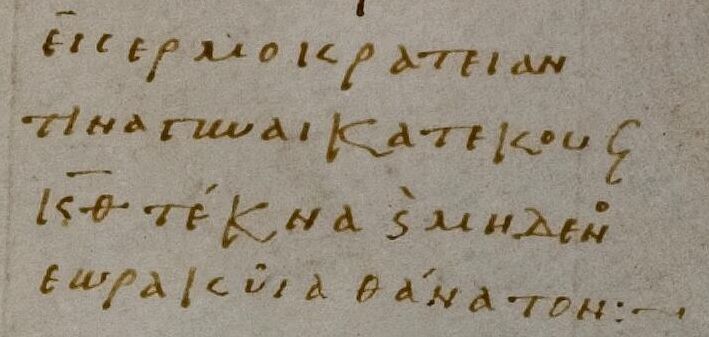 εἰς ερμοκρατειαν
τινα γυναικα τεκουσ
κ̅θ̅ τέκνα ϛ̀ μηδενο
εωρακυῖα θάνατον:~